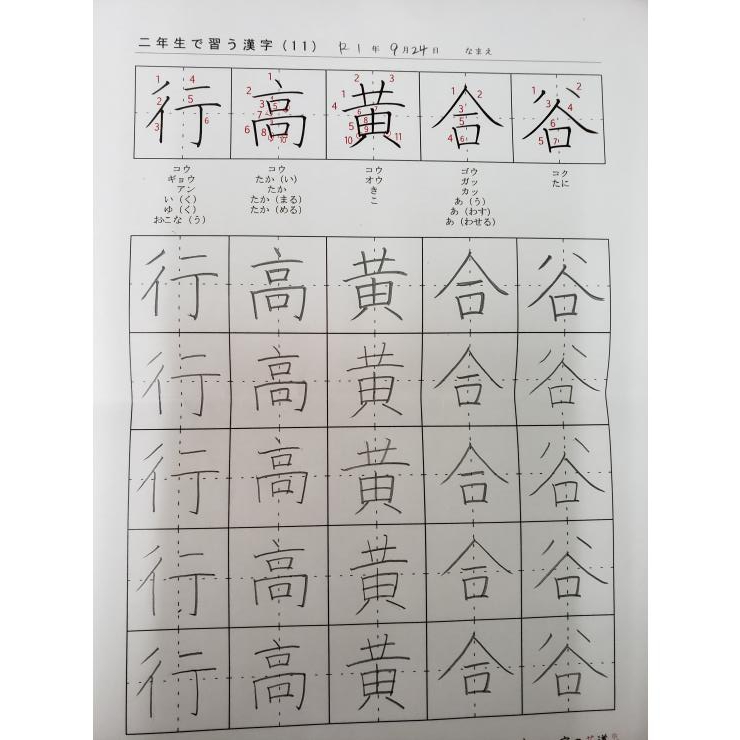 二年生で習う漢字（11） R1年 9月24日 なまえ
行 高 黄 合 谷
コウ ギョウ アン い（く） ゆ（く） おこな（う）
コウ たか（い） たか たか（まる） たか（める）
コウ オウ き こ
ゴウ ガッ カッ あ（う） あ（わす） あ（わせる）
コク たに
行 高 黄 合 谷
行 高 黄 合 谷
行 高 黄 合 谷
行 高 黄 合 谷
行 高 黄 合 谷